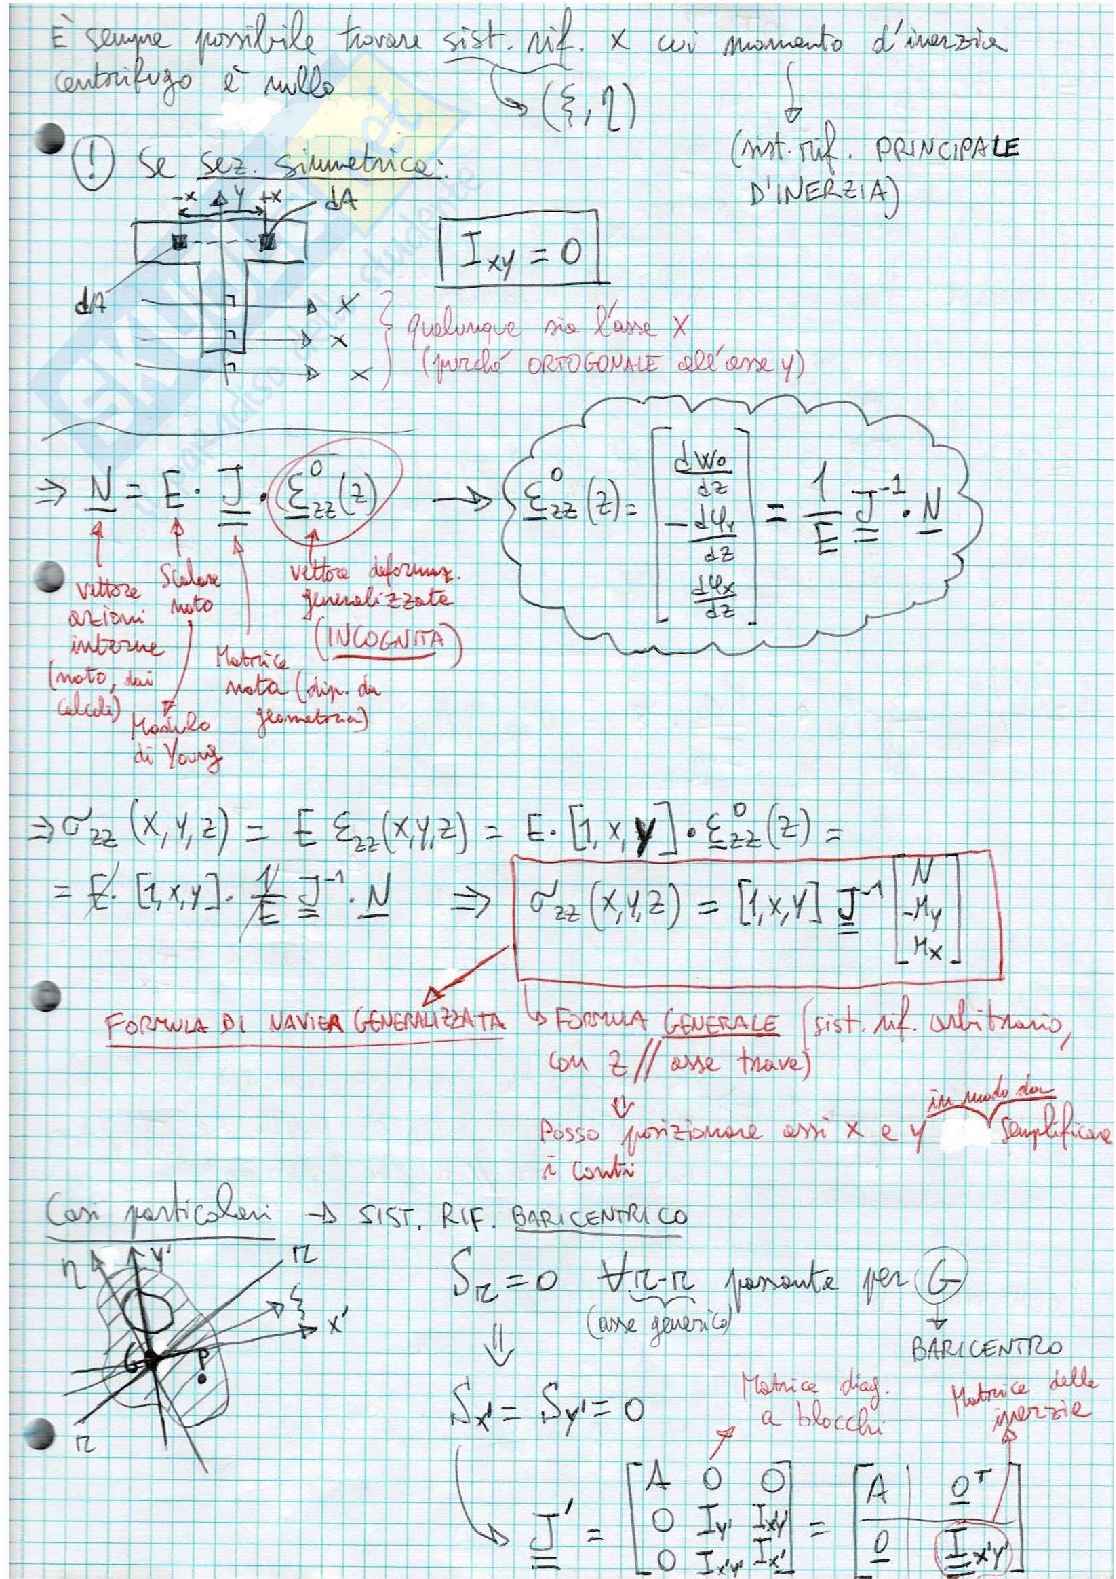 È sempre possibile trovare sist. rif. x cui momento d'inerzia
centrifugo è nullo
(ξ, η)
(sist. rif. PRINCIPALE
D'INERZIA)
! Se sez. simmetrica:
-x y +x dA
I_xy = 0
dA
x
x
x
qualunque sia l'asse x
(purché ORTOGONALE all'asse y)
⇒ N = E · J · ε⁰_zz(z) → ε⁰_zz(z) = [dw₀/dz, -dφ_y/dz, dφ_x/dz] = 1/E J⁻¹ · N
vettore azioni interne (noto, dai calcoli)
Scalare noto
Modulo di Young
Matrice nota (dip. da geometria)
vettore deformaz. generalizzate
(INCOGNITA)
⇒ σ_zz (x,y,z) = E ε_zz(x,y,z) = E · [1,x,y] · ε⁰_zz(z) =
= E · [1,x,y] · 1/E J⁻¹ · N ⇒ σ_zz (x,y,z) = [1,x,y] J⁻¹ [N, -M_y, M_x]
FORMULA DI NAVIER GENERALIZZATA
↳ FORMULA GENERALE (sist. rif. arbitrario,
con z // asse trave)
⇓
Posso posizionare assi x e y in modo da semplificare
i conti
Casi particolari → SIST. RIF. BARICENTRICO
η y' r
ξ
x'
G P
r
S_r = 0 ∀ r-r passante per G
(asse generico)
BARICENTRO
⇓
S_x' = S_y' = 0
Matrice diag.
a blocchi
Matrice delle
inerzie
J' = [A 0 0; 0 I_y' I_x'y'; 0 I_x'y' I_x'] = [A 0ᵀ; 0 I_x'y']